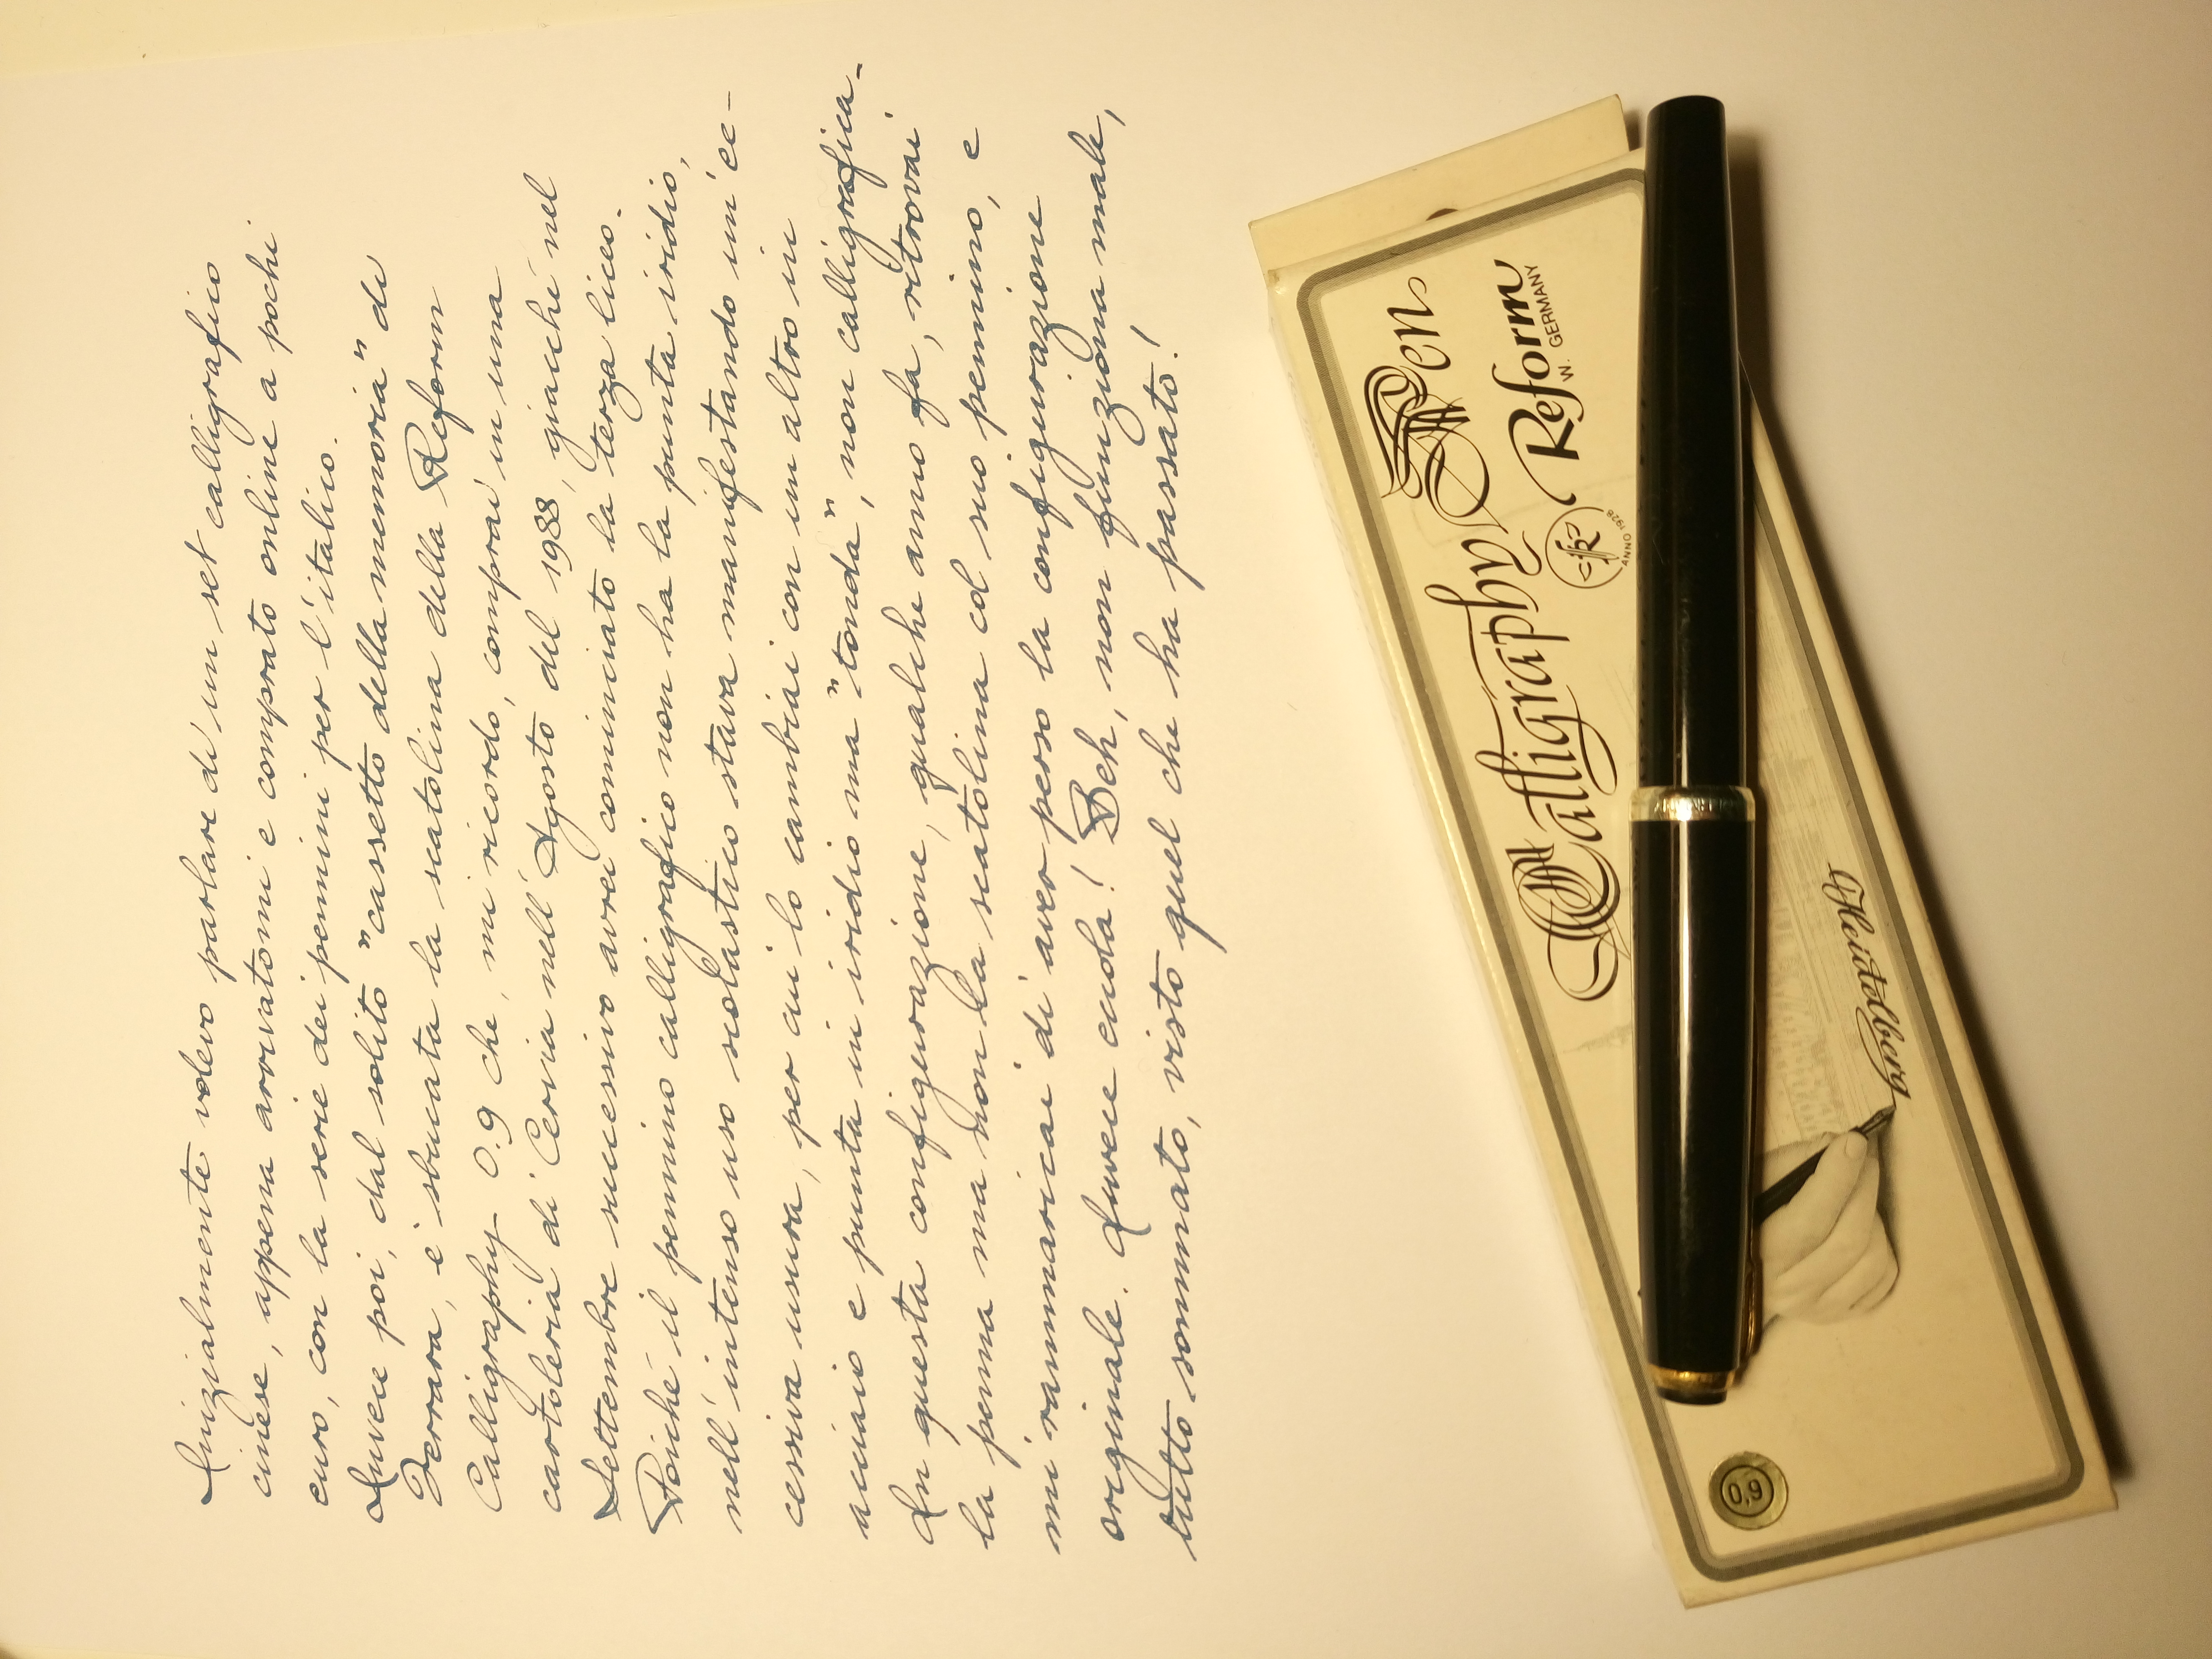 Inizialmente volevo parlare di un set calligrafico
cinese, appena arrivatomi e comprato online a pochi
euro, con la serie dei pennini per l'italico.
Invece poi, dal solito "cassetto della memoria" di
Ferrara, è sbucata la scatolina della Reform
Calligraphy 0.9 che, mi ricordo, comprai in una
cartoleria di Cervia nell'Agosto del 1988, giacché nel
Settembre successivo avrei cominciato la terza liceo.
Poiché il pennino calligrafico non ha la punta iridio,
nell'intenso uso scolastico stava manifestando un'ec-
cessiva usura, per cui lo cambiai con un altro in
acciaio e punta in iridio ma "tonda", non calligrafica.
In questa configurazione, qualche anno fa, ritrovai
la penna ma non la scatolina col suo pennino, e
mi rammaricai di aver perso la configurazione
originale. Invece eccola! Beh, non funziona male,
tutto sommato, visto quel che ha passato!
Calligraphy Pen
Reform
W. GERMANY
ANNO 1928
Heidelberg
0,9